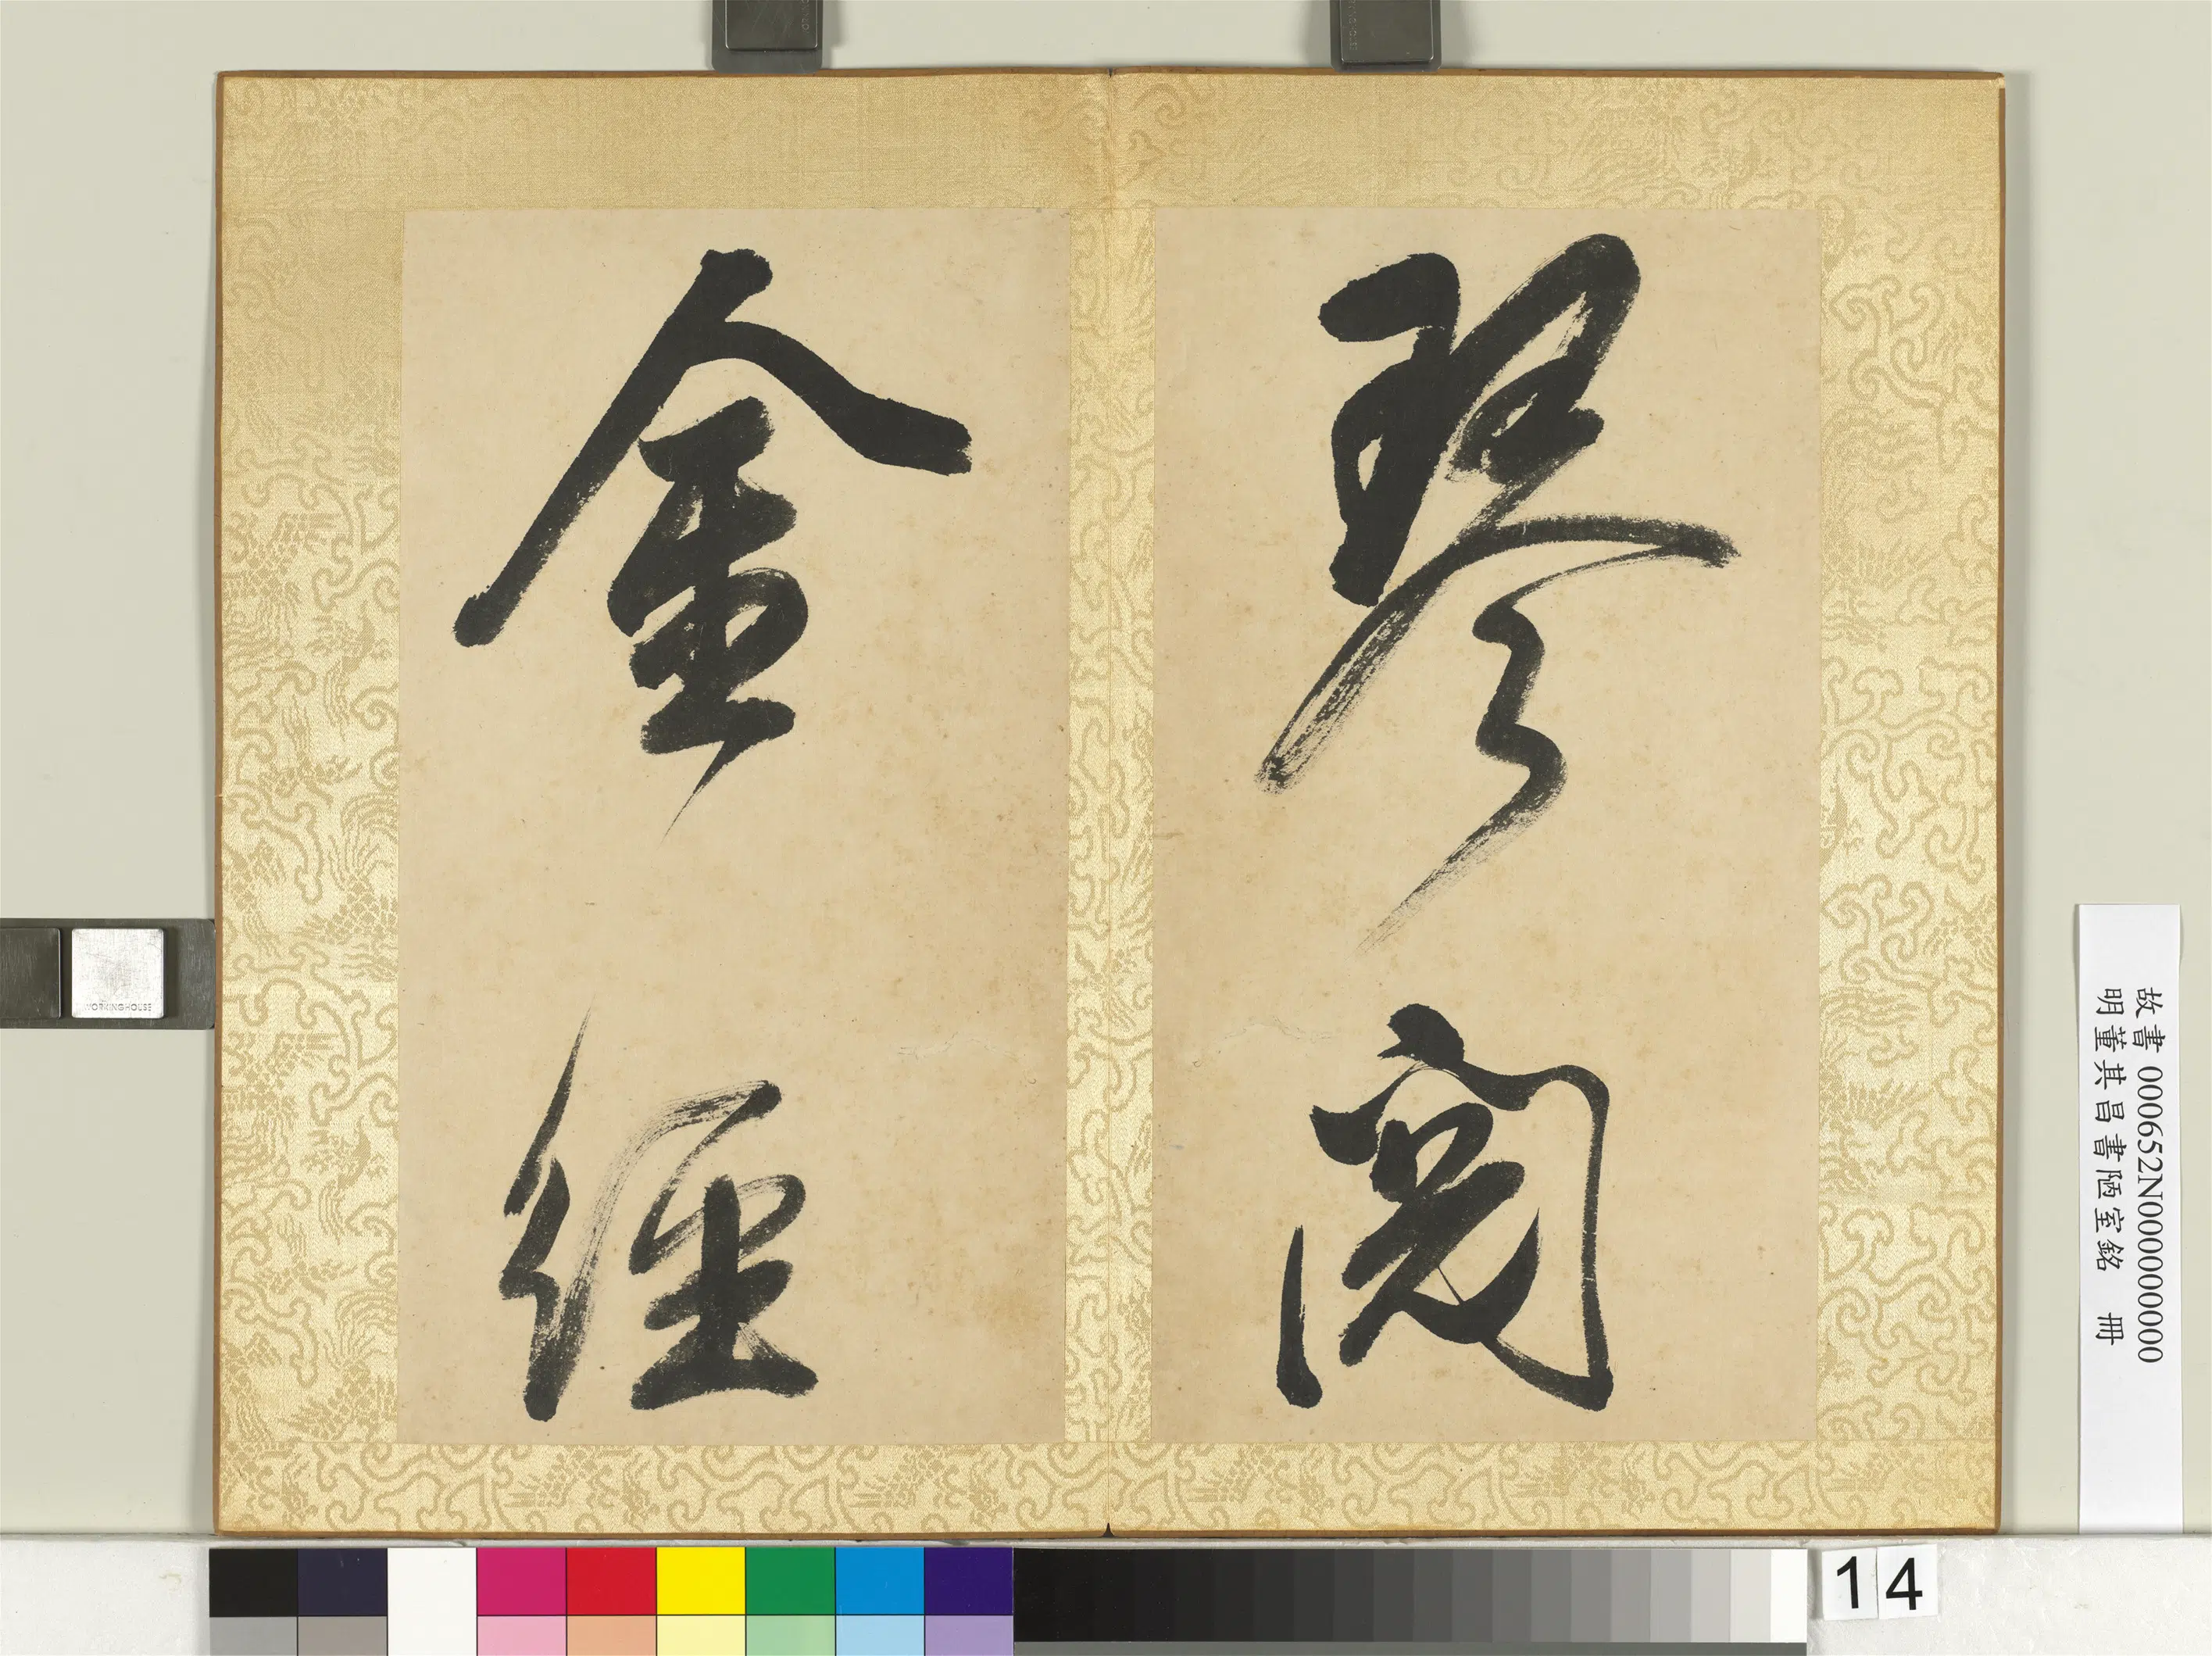 琴閱
金經
故書 000652N000000000
明董其昌書陋室銘 冊
14
WORKINGHOUSE